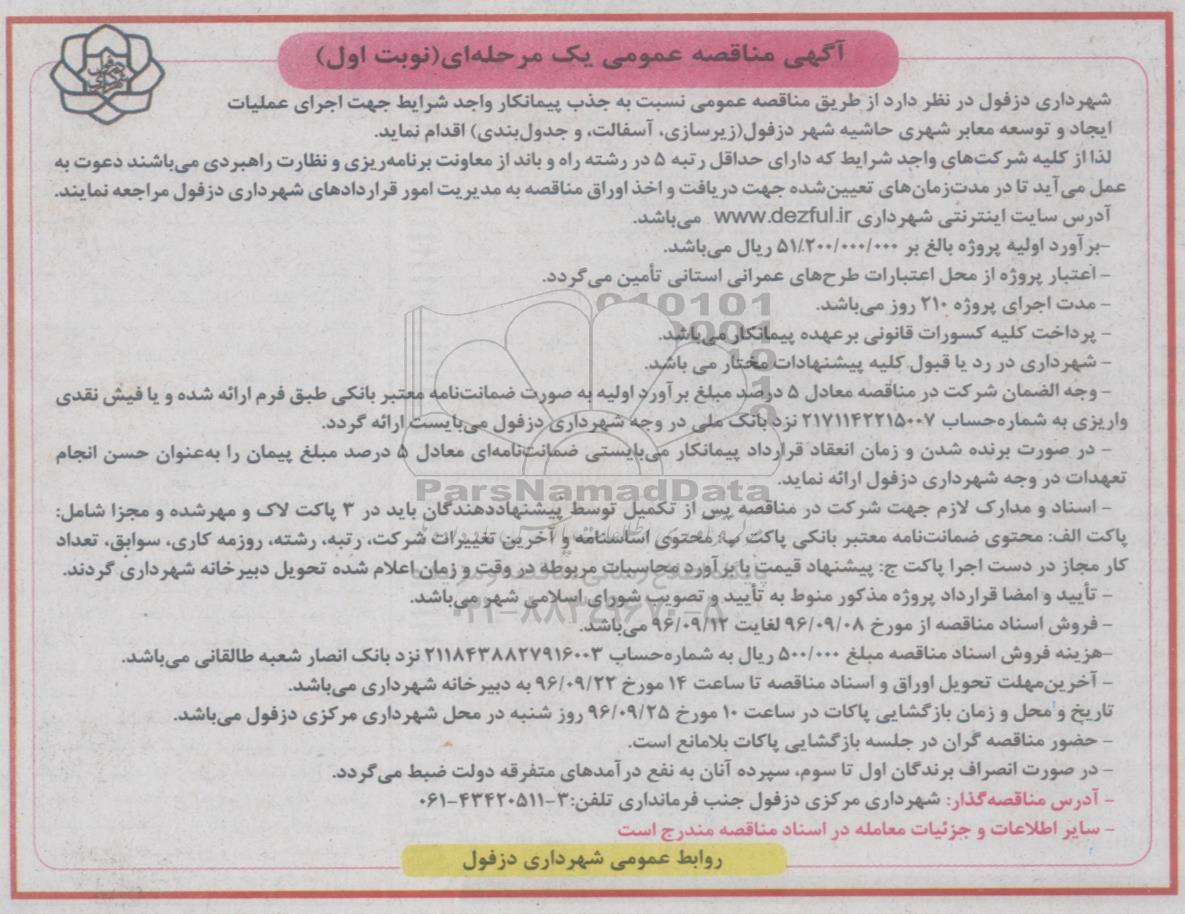 آگهی مناقصه عمومی یک مرحله‌ای(نوبت اول)
شهرداری دزفول در نظر دارد از طریق مناقصه عمومی نسبت به جذب پیمانکار واجد شرایط جهت اجرای عملیات
ایجاد و توسعه معابر شهری حاشیه شهر دزفول(زیرسازی، آسفالت، و جدول‌بندی) اقدام نماید.
لذا از کلیه شرکت‌های واجد شرایط که دارای حداقل رتبه ۵ در رشته راه و باند از معاونت برنامه‌ریزی و نظارت راهبردی می‌باشند دعوت به
عمل می‌آید تا در مدت‌زمان‌های تعیین‌شده جهت دریافت و اخذ اوراق مناقصه به مدیریت امور قراردادهای شهرداری دزفول مراجعه نمایند.
آدرس سایت اینترنتی شهرداری www.dezful.ir می‌باشد.
-برآورد اولیه پروژه بالغ بر ۵۱/۲۰۰/۰۰۰/۰۰۰ ریال می‌باشد.
- اعتبار پروژه از محل اعتبارات طرح‌های عمرانی استانی تأمین می‌گردد.
- مدت اجرای پروژه ۲۱۰ روز می‌باشد.
- پرداخت کلیه کسورات قانونی برعهده پیمانکار می‌باشد.
- شهرداری در رد یا قبول کلیه پیشنهادات مختار می باشد.
- وجه الضمان شرکت در مناقصه معادل ۵ درصد مبلغ برآورد اولیه به صورت ضمانت‌نامه معتبر بانکی طبق فرم ارائه شده و یا فیش نقدی
واریزی به شماره‌حساب ۲۱۷۱۱۴۲۲۱۵۰۰۷ نزد بانک ملی در وجه شهرداری دزفول می‌بایست ارائه گردد.
- در صورت برنده شدن و زمان انعقاد قرارداد پیمانکار می‌بایستی ضمانت‌نامه‌ای معادل ۵ درصد مبلغ پیمان را به‌عنوان حسن انجام
تعهدات در وجه شهرداری دزفول ارائه نماید.
ParsNamadData
- اسناد و مدارک لازم جهت شرکت در مناقصه پس از تکمیل توسط پیشنهاددهندگان باید در ۳ پاکت لاک و مهرشده و مجزا شامل:
پاکت الف: محتوی ضمانت‌نامه معتبر بانکی پاکت ب: محتوی اساسنامه و آخرین تغییرات شرکت، رتبه، رشته، روزمه کاری، سوابق، تعداد
کار مجاز در دست اجرا پاکت ج: پیشنهاد قیمت با برآورد محاسبات مربوطه در وقت و زمان اعلام شده تحویل دبیرخانه شهرداری گردند.
- تأیید و امضا قرارداد پروژه مذکور منوط به تأیید و تصویب شورای اسلامی شهر می‌باشد.
۰۲۱-۸۸۳۴۹۶۷۰-۸
- فروش اسناد مناقصه از مورخ ۹۶/۰۹/۰۸ لغایت ۹۶/۰۹/۱۲ می‌باشد.
-هزینه فروش اسناد مناقصه مبلغ ۵۰۰/۰۰۰ ریال به شماره‌حساب ۲۱۱۸۴۳۸۸۲۷۹۱۶۰۰۳ نزد بانک انصار شعبه طالقانی می‌باشد.
- آخرین‌مهلت تحویل اوراق و اسناد مناقصه تا ساعت ۱۴ مورخ ۹۶/۰۹/۲۲ به دبیرخانه شهرداری می‌باشد.
تاریخ و محل و زمان بازگشایی پاکات در ساعت ۱۰ مورخ ۹۶/۰۹/۲۵ روز شنبه در محل شهرداری مرکزی دزفول می‌باشد.
- حضور مناقصه گران در جلسه بازگشایی پاکات بلامانع است.
- در صورت انصراف برندگان اول تا سوم، سپرده آنان به نفع درآمدهای متفرقه دولت ضبط می‌گردد.
- آدرس مناقصه‌گذار: شهرداری مرکزی دزفول جنب فرمانداری تلفن:۳-۴۳۴۲۰۵۱۱-۰۶۱
- سایر اطلاعات و جزئیات معامله در اسناد مناقصه مندرج است
روابط عمومی شهرداری دزفول